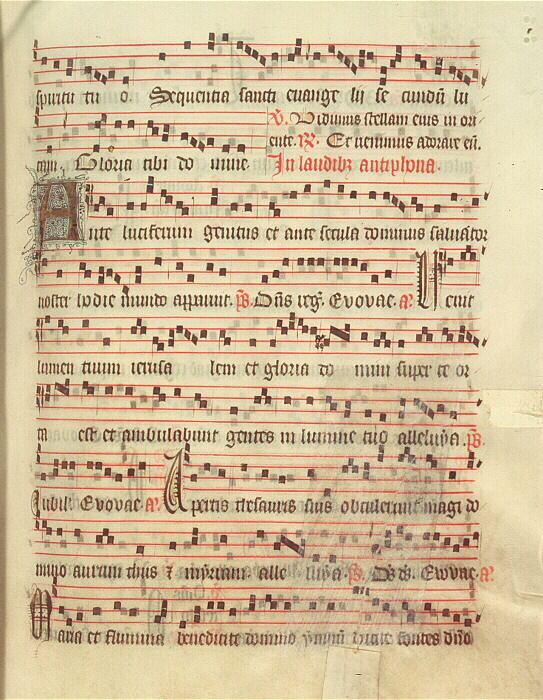 spiritu tu o. Sequentia sancti euange lij se cundu lu
℣. Vidimus stellam eius in ori
cam. Gloria tibi do mine.
ente. ℟. Et venimus adorare eu.
In laudibz antiphona.
Ante luciferum genitus et ante secula dominus saluator
noster hodie mundo apparuit. ps. Dns reg. Evovae. a. Uenit
lumen tuum ierusa lem et gloria do mini super te or
ta est et ambulabunt gentes in lumine tuo alleluya. ps.
Jubil. Evovae. a. Apertis thesauris suis obtulerunt magi do
mino aurum thus et myrram. alle luya. ps. Ds ds. Evovae. a.
Maria et flumina benedicite domino fontes dno